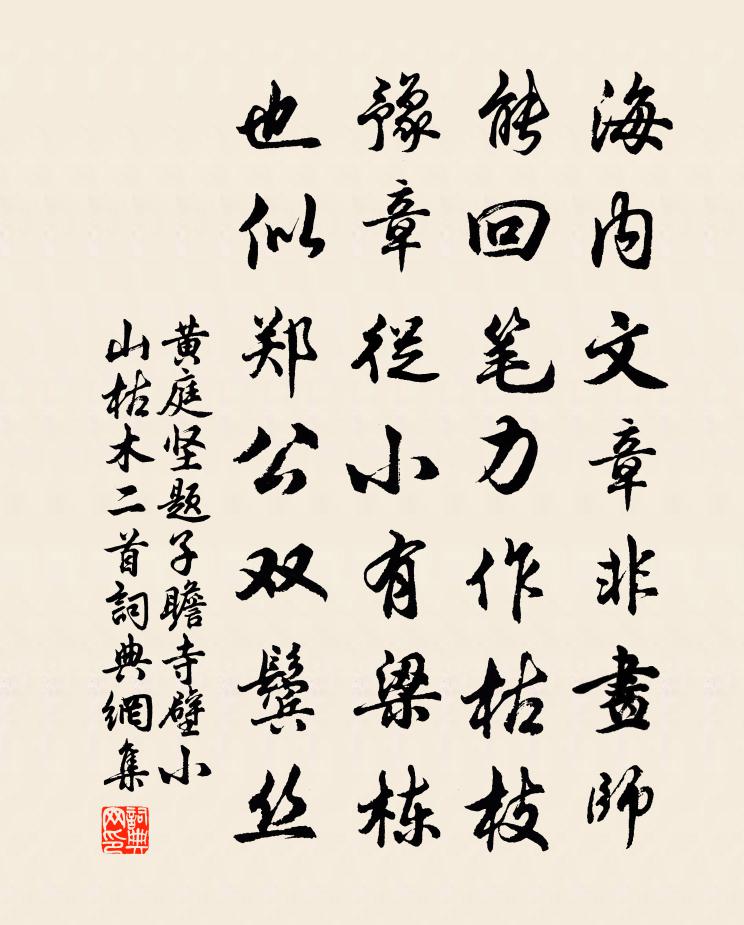 海内文章非畫師
能回笔力作枯枝
豫章從小有梁栋
也似郑公双鬓丝
黄庭坚题子瞻寺壁小
山枯木二首詞典網集
詞典
网印